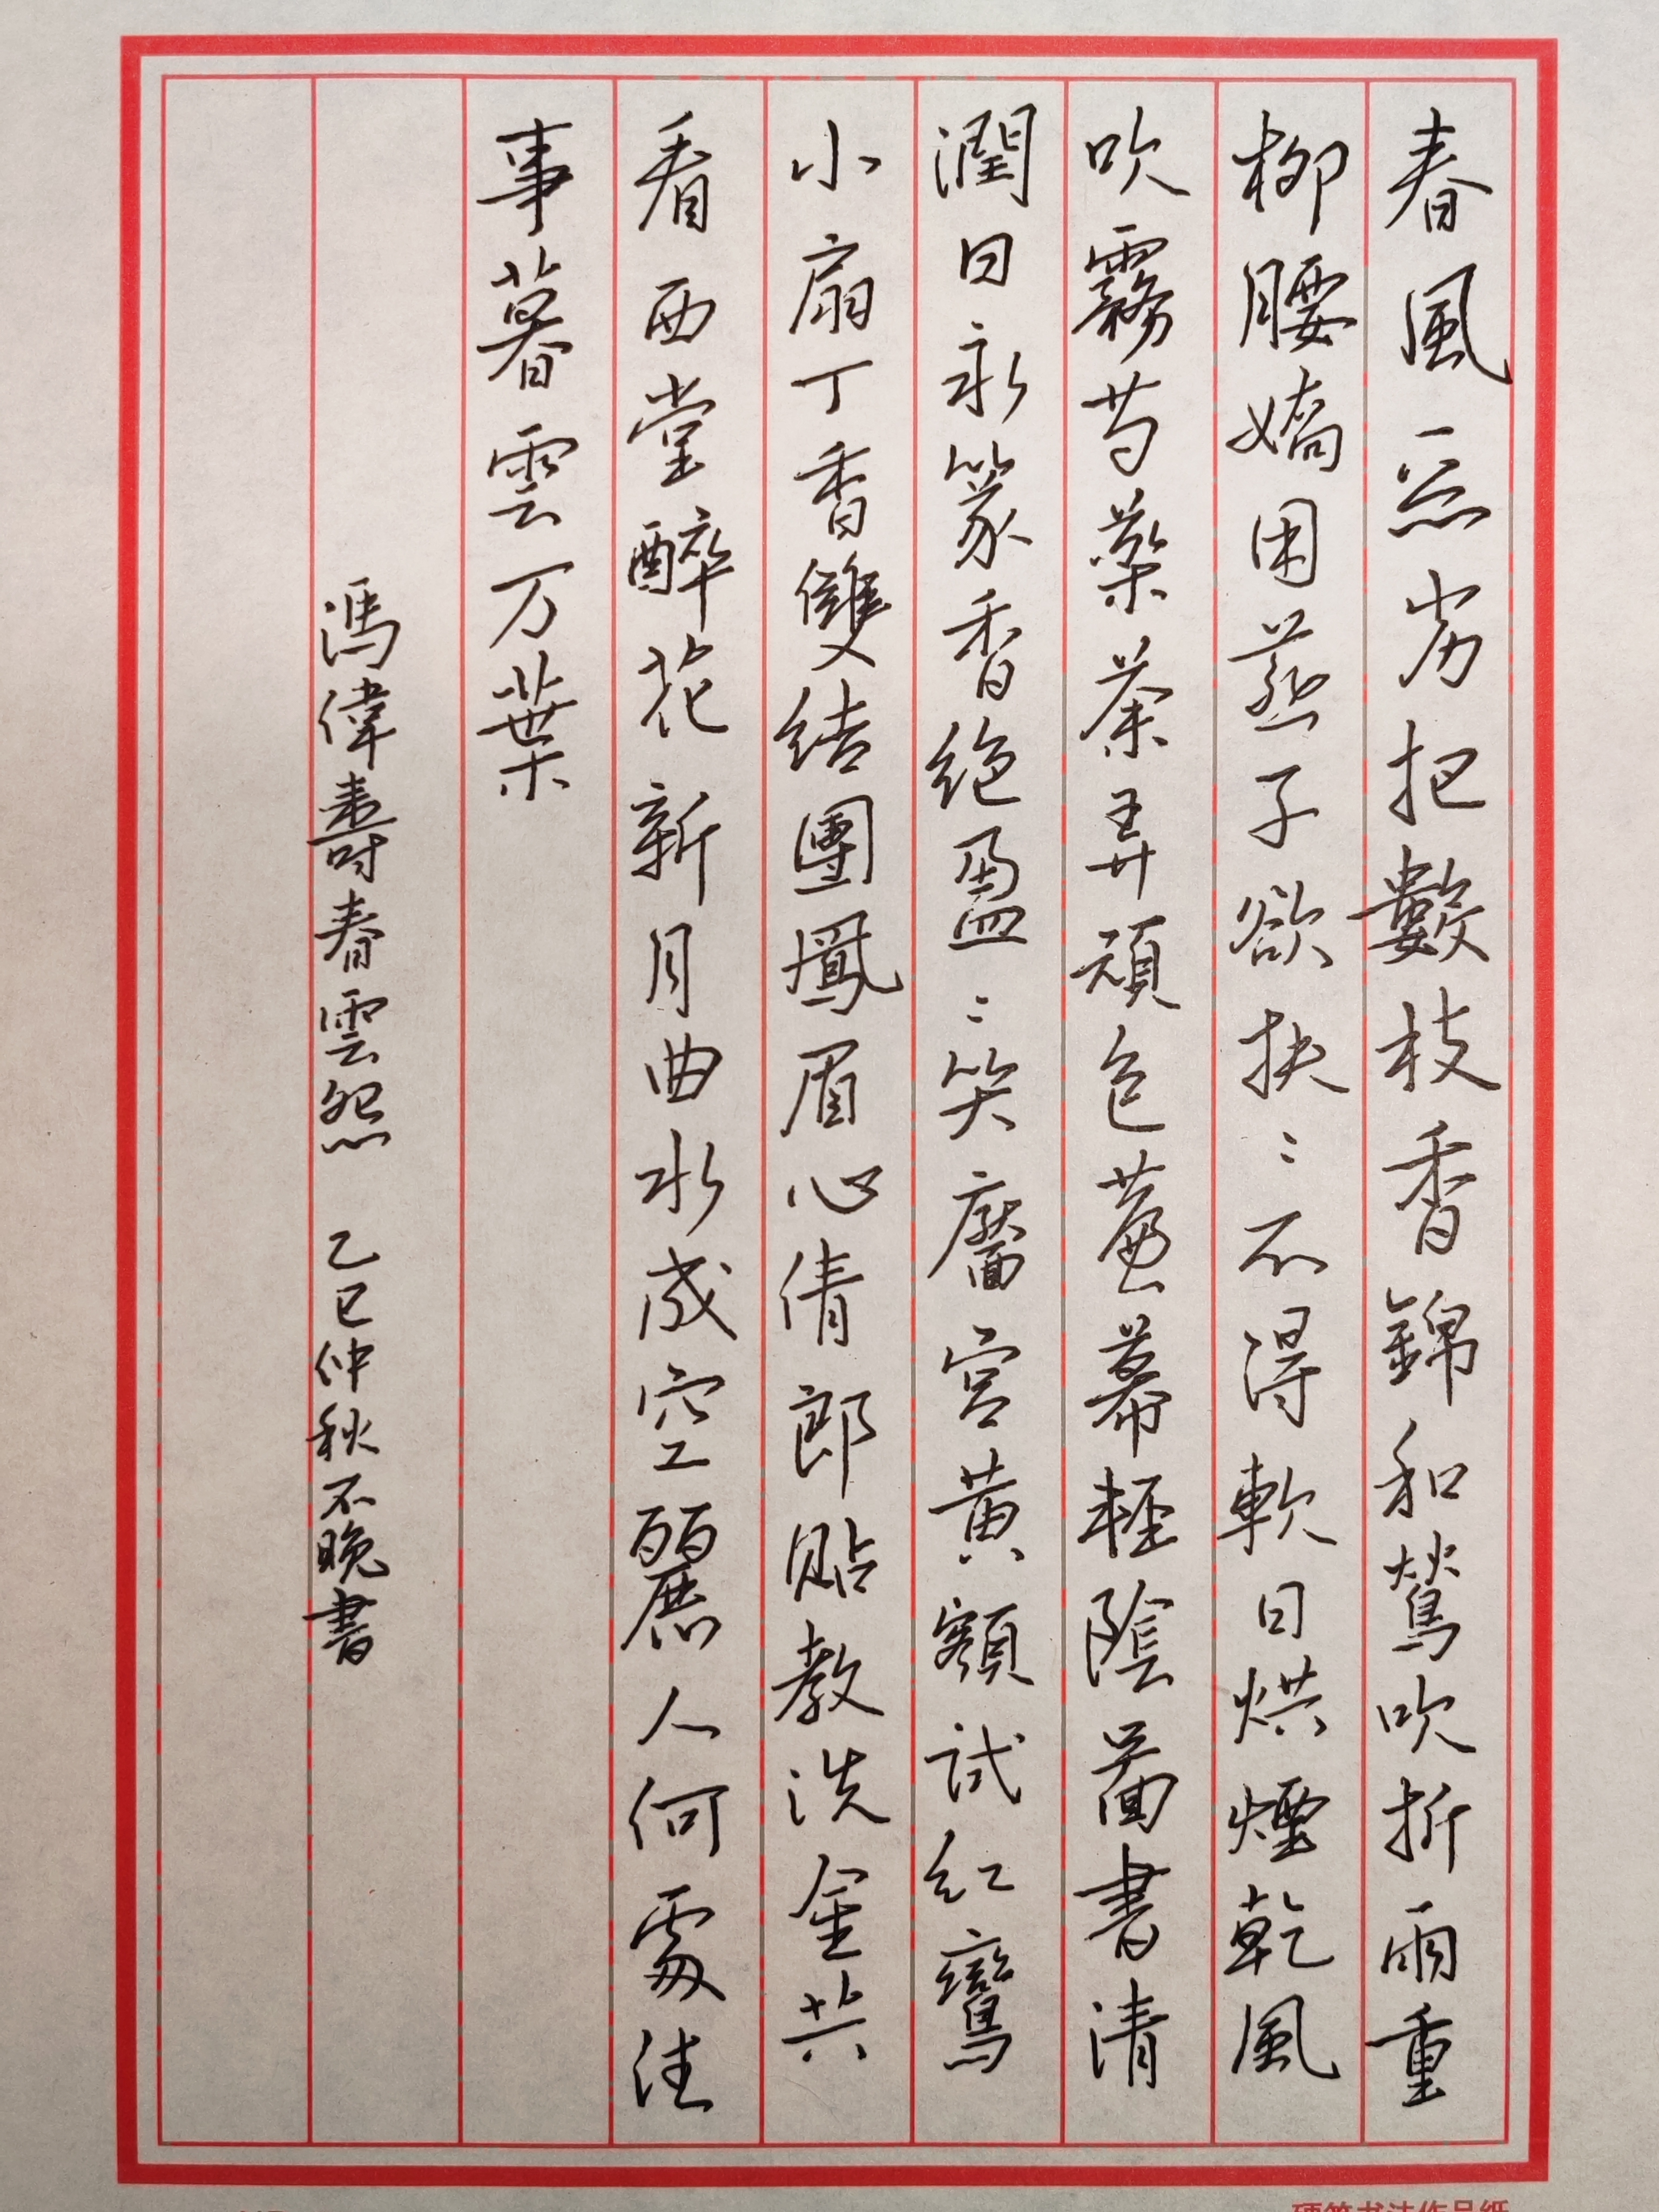 春風惡劣把數枝香錦和鶯吹折雨重
柳腰嬌困燕子欲扶〻不得軟日烘煙乾風
吹霧芍藥荼弄顏色簾幕輕陰圖書清
潤日永篆香絕盈〻笑靨宮黃額試紅鸞
小扇丁香雙結團鳳眉心倩郎貼教洗金共
看西堂醉花新月曲水成空麗人何處往
事暮雲万葉
馮偉壽春雲怨 乙巳仲秋不晚書